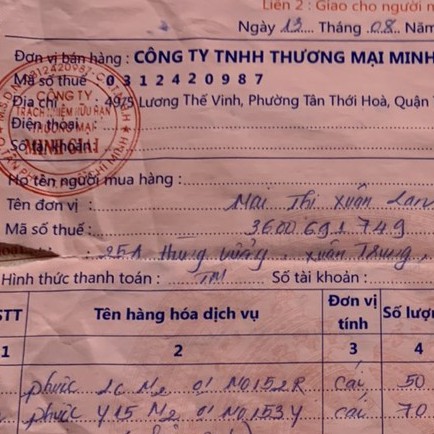 Liên 2 : Giao cho người m
Ngày 13 Tháng .08. Năm
Đơn vị bán hàng : CÔNG TY TNHH THƯƠNG MẠI MINH
Mã số thuế : 0 3 1 2 4 2 0 9 8 7
Địa chỉ : 49/5 Lương Thế Vinh, Phường Tân Thới Hoà, Quận
Điện thoại :
Số tài khoản :
CÔNG TY
TRÁCH NHIỆM HỮU HẠN
THƯƠNG MẠI
Họ tên người mua hàng :
Tên đơn vị : Mai Thị Xuân Lan
Mã số thuế: 3600.691749
25A Hùng Vương, Xuân Trung,
Hình thức thanh toán : TM Số tài khoản :
STT Tên hàng hóa dịch vụ Đơn vị tính Số lượn
1 2 3 4
phuộc No152R cái 50
phuộc Y15 No153Y cái 70